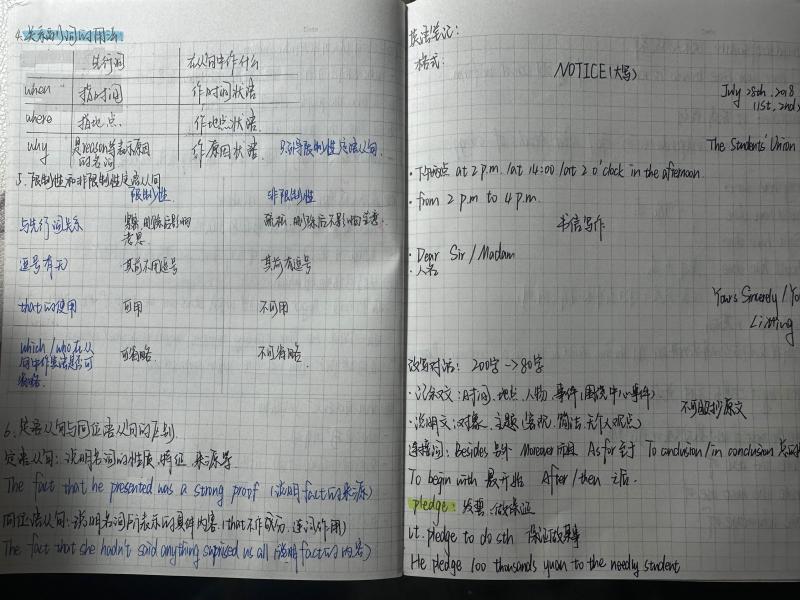 4.关系副词的用法
先行词 在从句中作什么
when 指时间 作时间状语
where 指地点 作地点状语
why 是reason等表示原因的名词 作原因状语 只引导限制性定语从句
5.限制性和非限制性定语从句
限制性 非限制性
与先行词关系 紧密,删除后影响意思 疏松,删除后不影响主意.
逗号有无 其前不用逗号 其前有逗号
that的使用 可用 不可用
which/who在从句中作宾语是否可省略 可省略 不可省略
6.定语从句与同位语从句的区别
定语从句:说明名词的性质、特征、来源等
The fact that he presented was a strong proof (说明fact的来源)
同位语从句:说明名词所表示的具体内容.(that不作成分,连词作用)
The fact that she hadn't said anything suprised us all (说明fact的内容)
英语笔记:
格式:
NOTICE(大写)
July 28th.2018
(1st,2nd
The Students' Union
·下午两点 at 2 p.m. /at 14:00 /at 2 o'clock in the afternoon.
·from 2 p.m to 4 p.m.
书信写作
·Dear Sir / Madam
·人名
Yours Sincerely / Yo
Li
改写对话: 200字->80字
·记叙文:时间、地点、人物、事件(围绕中心事件)
不可照抄原文
·说明文:对象、主题(客观、简洁、无个人观点)
连接词: Besides 另外 Moreover 而且 As for 至于 To conclusion/in conclusion
To begin with 最开始 After/then 之后.
pledge: 发誓、做保证
vt. pledge to do sth 保证做某事
He pledge 100 thousands yuan to the needly student